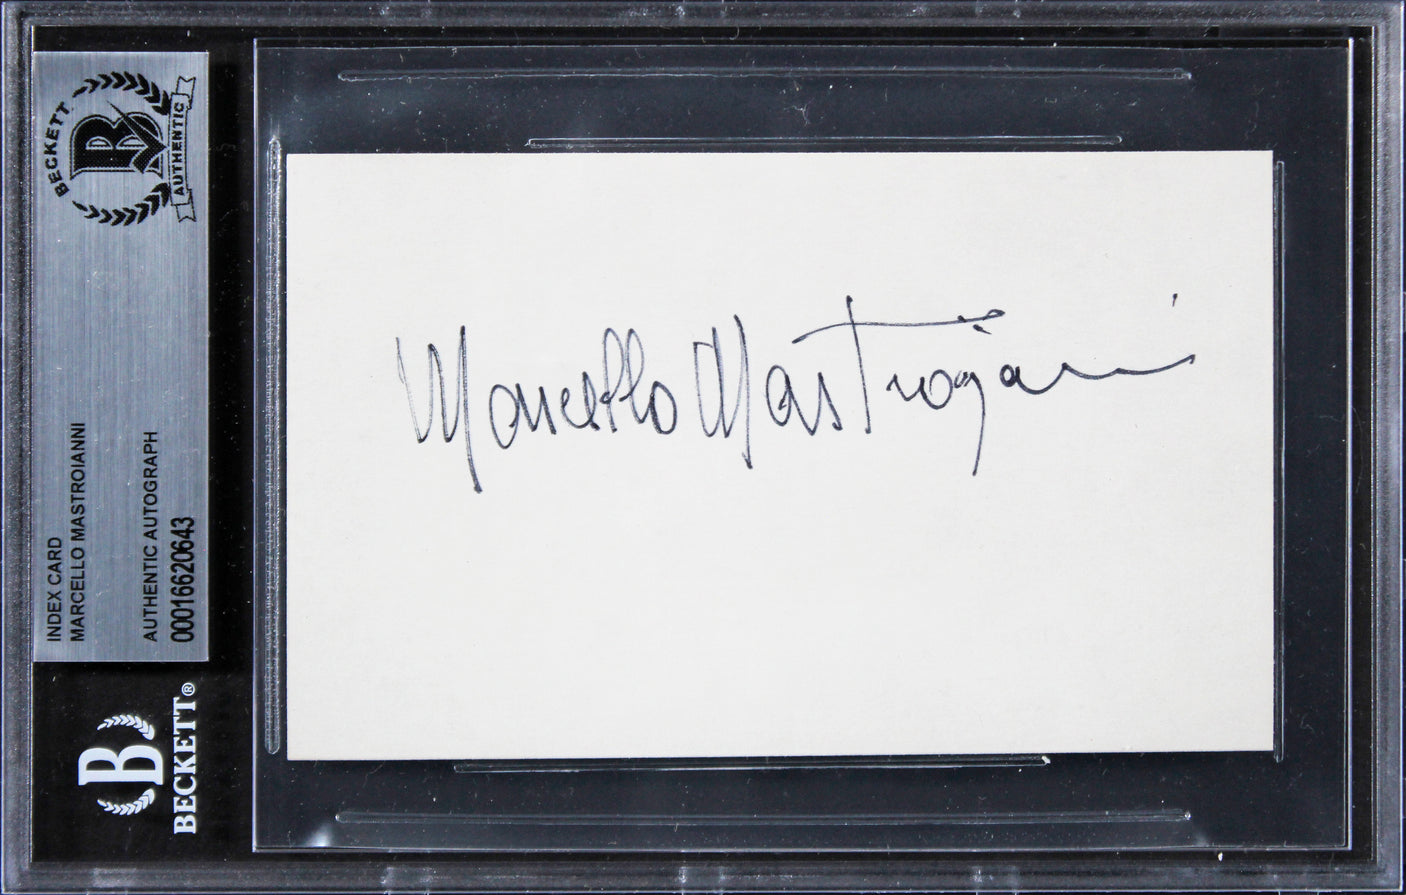 BECKETT
B
AUTHENTIC
INDEX CARD
MARCELLO MASTROIANNI
AUTHENTIC AUTOGRAPH
00016620643
B
BECKETT®
Marcello Mastrojanni